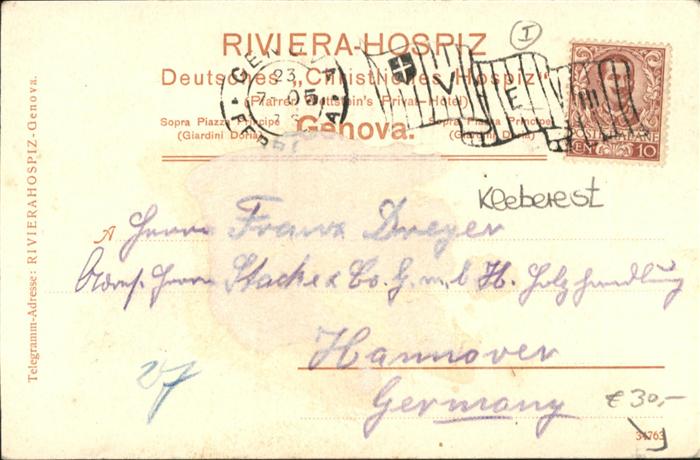 RIVIERA-HOSPIZ
Deutsches „Christliches Hospiz"
(Pfarrer Bettstein's Privat-Hôtel)
Sopra Piazza Principe
(Giardini Doria)
Genova.
Sopra Piazza Principe
(Giardini Doria)
GENOVA
23
7 05
FERROVIA
V E III
I
10
Kleberest
Herrn Franz Dreyer
Adress. Herrn Stacke & Co. G. m. b. H. Holzhandlung
Hannover
Germany
€ 30,-
34763
Telegramm-Adresse: RIVIERAHOSPIZ-Genova.